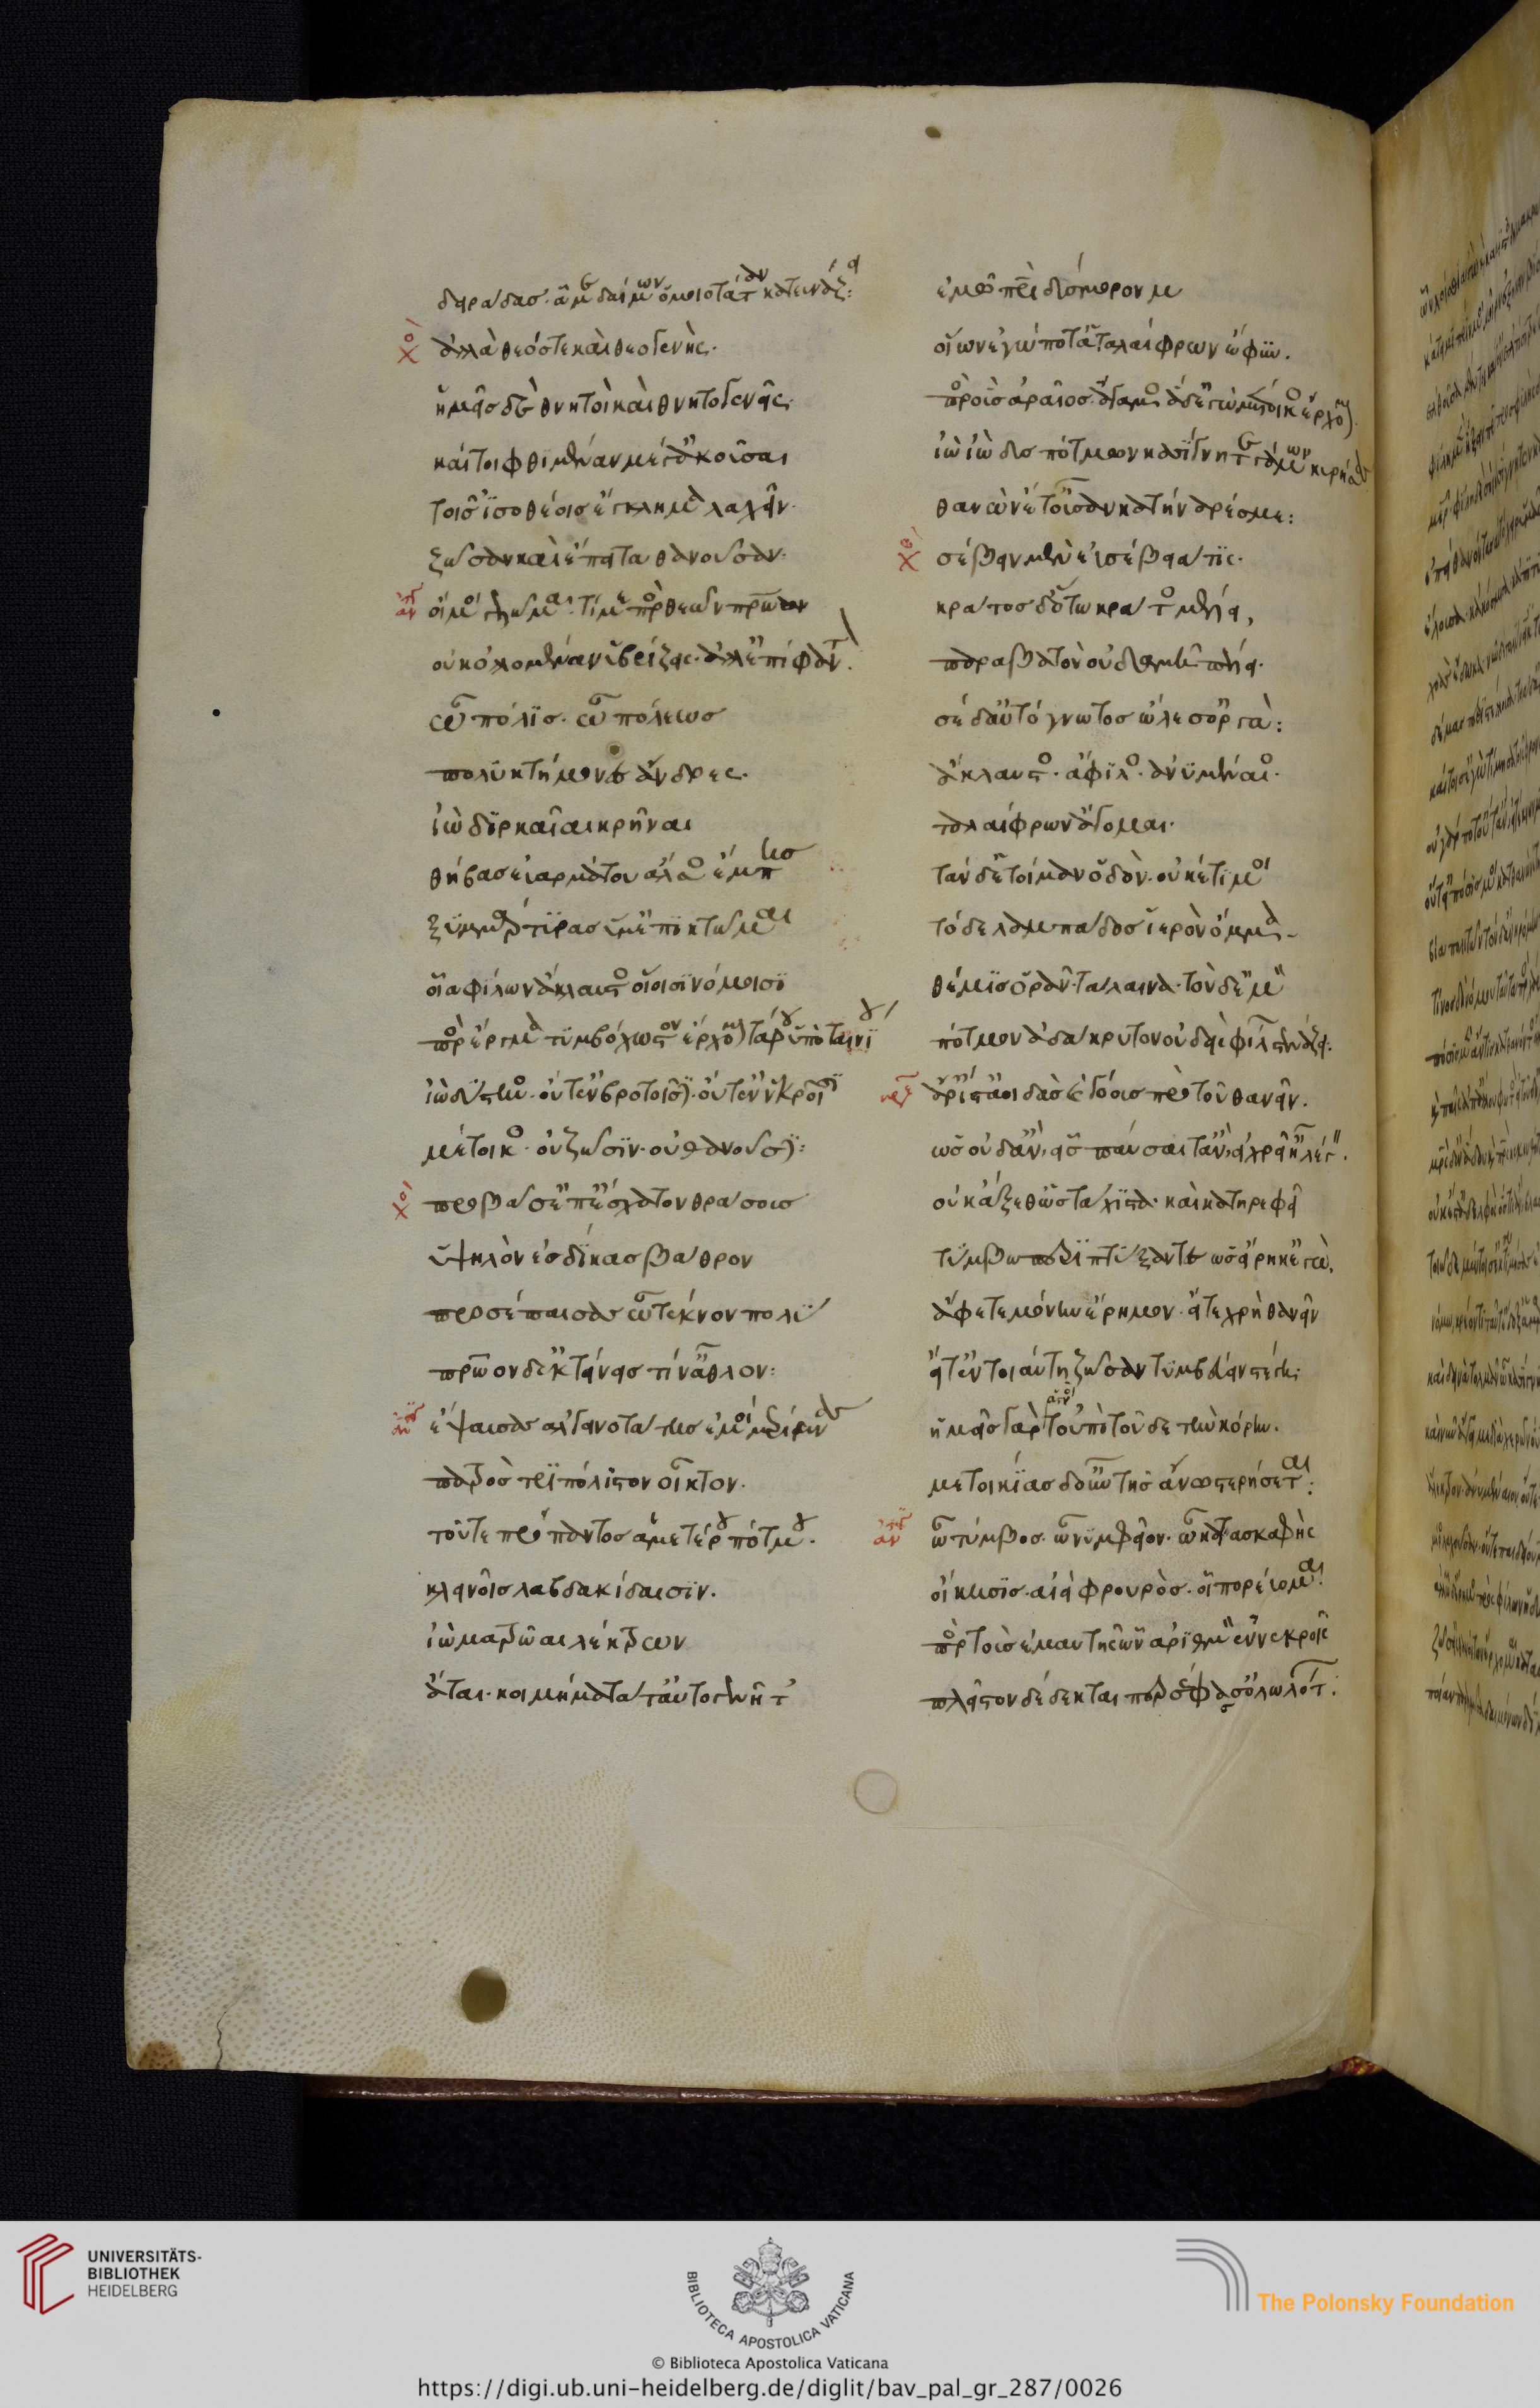 δειράδας· ᾇ με δαίμων ὁμοιοτάταν κατευνάζει:
χο ἀλλὰ θεός τε καὶ θεογενής·
ἡμεῖς δὲ θνητοὶ καὶ θνητογενεῖς·
καίτοι φθιμέναν μέγ' ἀκοῦσαι
τοῖς ἰσοθέοις ἔγκλημα λαχεῖν·
ζῶσαν καὶ ἔπειτα θανοῦσαν·
αν οἴμοι γελῶμαι· τί με πρὸς θεῶν πατρῴων
οὐκ ὀλομέναν ὑβρίζεις· ἀλλ' ἐπίφαντον.
ὦ πόλις· ὦ πόλεως
πολυκτήμονες ἄνδρες·
ἰὼ διρκαῖαι κρῆναι
θήβας εὐαρμάτου ἄλσος ἔμπης
ξυμμάρτυρας ὔμμ' ἐπικτῶμαι
οἵα φίλων ἄκλαυστος οἵοισι νόμοισι
πρὸς ἔργμα τυμβόχωστον ἔρχομαι τάφου ποταινίου
ἰὼ δύστηνος· οὔτ' ἐν βροτοῖσιν· οὔτ' ἐν νεκροῖσι
μέτοικος· οὐ ζῶσιν· οὐ θανοῦσι:
χο προβᾶσ' ἐπ' ἔσχατον θράσους
ὑψηλὸν ἐς δίκας βάθρον
προσέπαισας ὦ τέκνον πολύ
πατρῷον δ' ἐκτίνεις τιν' ἆθλον:
αν ἔψαυσας ἀλγεινοτάτης ἐμοὶ μερίμνας
πατρὸς τριπόλιστον οἶκτον·
τοῦ τε πρόπαντος ἁμετέρου πότμου·
κλεινοῖς λαβδακίδαισιν·
ἰὼ ματρῷαι λέκτρων
ἆται· κοιμήματά τ' αὐτογέννητ'
ἐμῷ πατρὶ δυσμόρου μ
οἵων ἐγώ ποθ' ἁ ταλαίφρων ἔφυν·
πρὸς οὓς ἀραῖος ἄγαμος ἅδ' ἐγὼ μέτοικος ἔρχομαι·
ἰὼ ἰὼ δυσπότμων κασίγνητε γάμων κυρήσας
θανὼν ἔτ' οὖσαν κατήναρές με:
χο σέβειν μὲν εὐσέβειά τις·
κράτος δ' ὅτῳ κράτος μέλει,
παραβατὸν οὐδαμῇ πέλει·
σὲ δ' αὐτόγνωτος ὤλεσ' ὀργά:
ἄκλαυστος· ἄφιλος· ἀνυμέναιος·
ταλαίφρων ἄγομαι·
τάνδ' ἑτοίμαν ὁδόν· οὐκέτι μοι
τόδε λαμπάδος ἱερὸν ὄμμα
θέμις ὁρᾶν ταλαίνα· τὸν δ' ἐμὸν
πότμον ἀδάκρυτον οὐδεὶς φίλων στενάζει:
κρέ ἆρ' ἴστ' ἀοιδὰς καὶ γόους πρὸ τοῦ θανεῖν·
ὡς οὐδ' ἂν εἷς παύσαιτ' ἂν, εἰ χρείη λέγειν.
οὐκ ἄξεθ' ὡς τάχιστα· καὶ κατηρεφεῖ
τύμβω περιπτύξαντες ὡς εἴρηκ' ἐγώ,
ἄφετε μόνην ἔρημον· εἴτε χρὴ θανεῖν
εἴτ' ἐν τοιαύτη ζῶσαν τυμβεύειν στέγη:
ἡμεῖς γὰρ ἁγνοὶ τοὐπὶ τοῦδε τὴν κόρην·
μετοικίας δ' οὖν τῆς ἄνω στερήσεται:
αν ὦ τύμβος· ὦ νυμφεῖον· ὦ κατασκαφὴς
οἴκησις· ἀείφρουρος· οἷ πορεύομαι
πρὸς τοὺς ἐμαυτῆς ὧν ἀριθμὸν ἐν νεκροῖς
πλεῖστον δέδεκται περσέφασσ' ὀλωλότων:
UNIVERSITÄTS-
BIBLIOTHEK
HEIDELBERG
BIBLIOTECA APOSTOLICA VATICANA
The Polonsky Foundation
© Biblioteca Apostolica Vaticana
https://digi.ub.uni-heidelberg.de/diglit/bav_pal_gr_287/0026